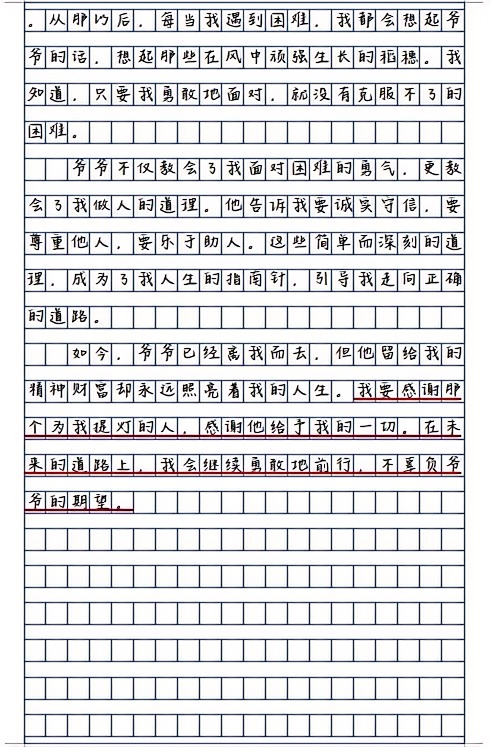 。从那以后，每当我遇到困难，我都会想起爷
爷的话，想起那些在风中顽强生长的稻穗。我
知道，只要我勇敢地面对，就没有克服不了的
困难。
爷爷不仅教会了我面对困难的勇气，更教
会了我做人的道理。他告诉我要诚实守信，要
尊重他人，要乐于助人。这些简单而深刻的道
理，成为了我人生的指南针，引导我走向正确
的道路。
如今，爷爷已经离我而去，但他留给我的
精神财富却永远照亮着我的人生。我要感谢那
个为我提灯的人，感谢他给予我的一切。在未
来的道路上，我会继续勇敢地前行，不辜负爷
爷的期望。